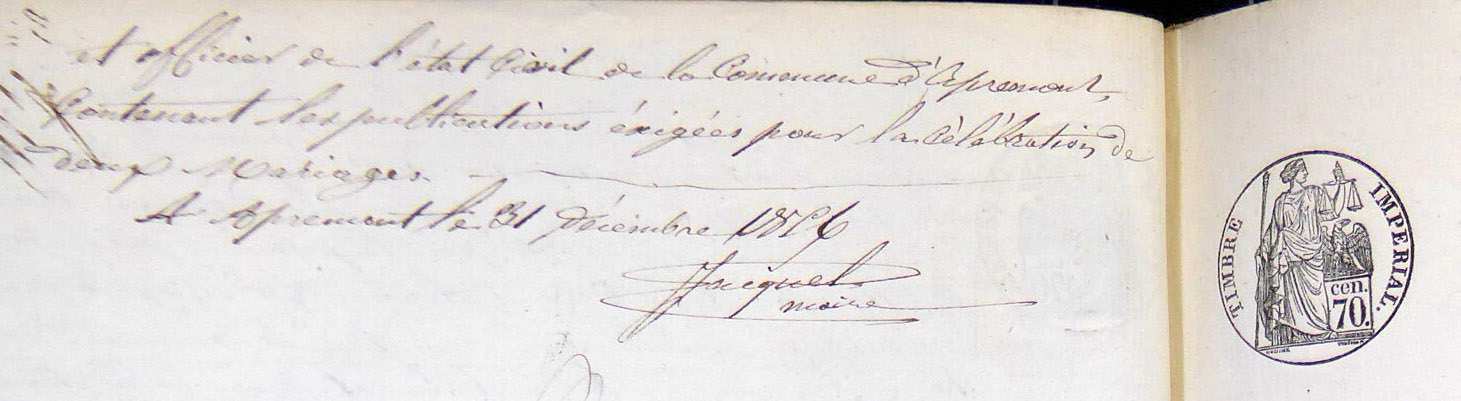 et officier de l'état Civil de la Commune d'Apremont,
Contenant les publications éxigées pour la Célébration de
deux Mariages.
A Apremont le 31 Décembre
Jacquet
maire
TIMBRE IMPERIAL.
cen.
70.